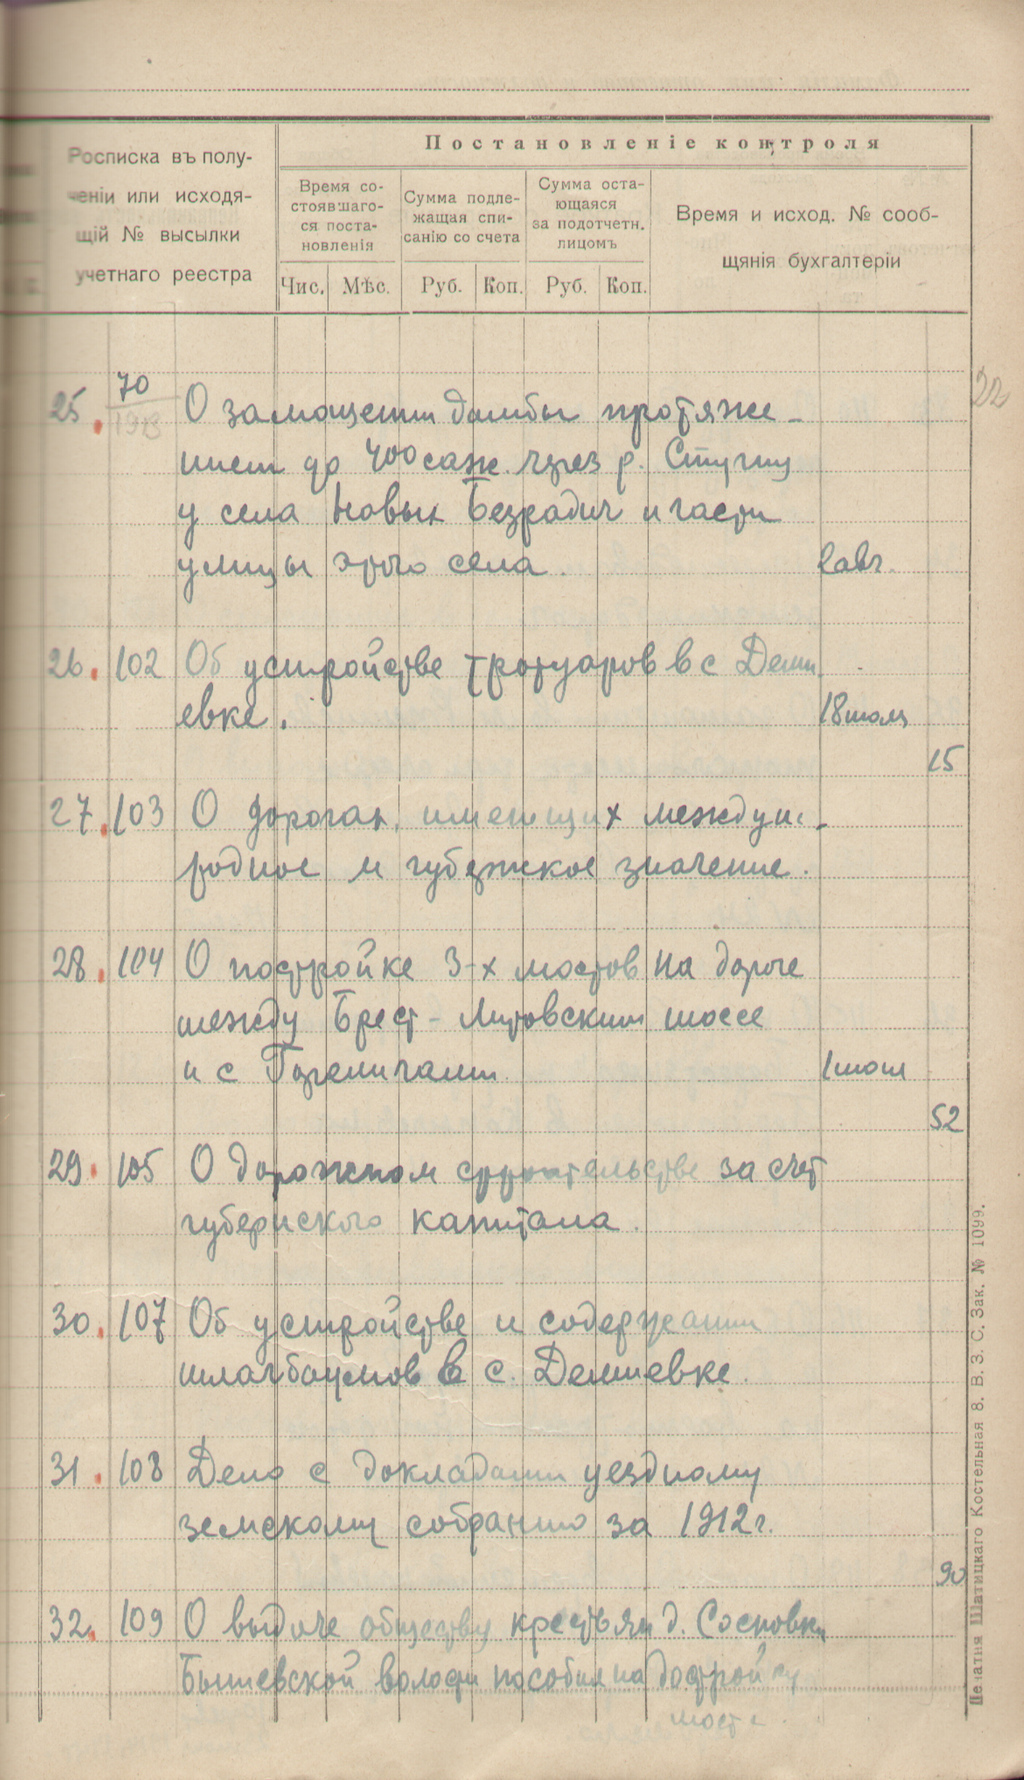 Постановленіе контроля
Росписка въ полу-
ченіи или исходя-
щій № высылки
учетнаго реестра
Время со-
стоявшаго-
ся поста-
новленія
Сумма подле-
жащая спи-
санію со счета
Сумма оста-
ющаяся
за подотчетн.
лицомъ
Время и исход. № сооб-
щянія бухгалтеріи
Чис. Мѣс. Руб. Коп. Руб. Коп.
22
25. 70 О замощении дамбы протяже-
1913
нием до 400 саж. через р. Стугну
у села Новых Безрадич и части
улицы этого села.
26. 102 Об устройстве тротуаров в с Деми
евке. 18
15
27. 103 О дорогах, имеющих между
родное и губернское значение.
28. 104 О постройке 3-х мостов на дороге
между Брест-Литовским шоссе
и с
52
29. 105 О дорожном строительстве за счет
губернского капитала.
30. 107 Об устройстве и содержании
шлагбаумов в с. Демиевке.
31. 108 Дело с докладами уездному
земскому собранию за 1912 г.
90
32. 109 О выдаче обществу крестьян д. Сосновки
Бышевской волости пособия на достройку
моста
Печатня Шатицкаго Костельная 8. В. З. С. Зак. № 1099.